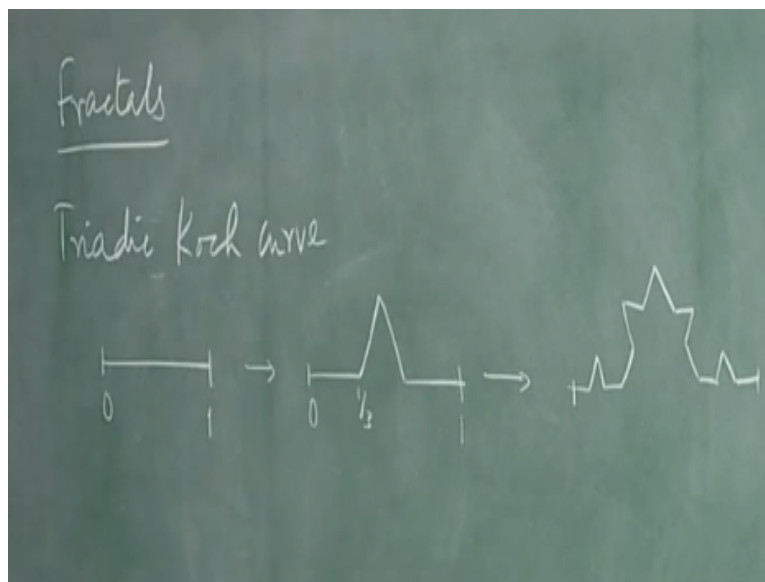 Fractals
Triadic Koch curve
0 1 0 1/3 1